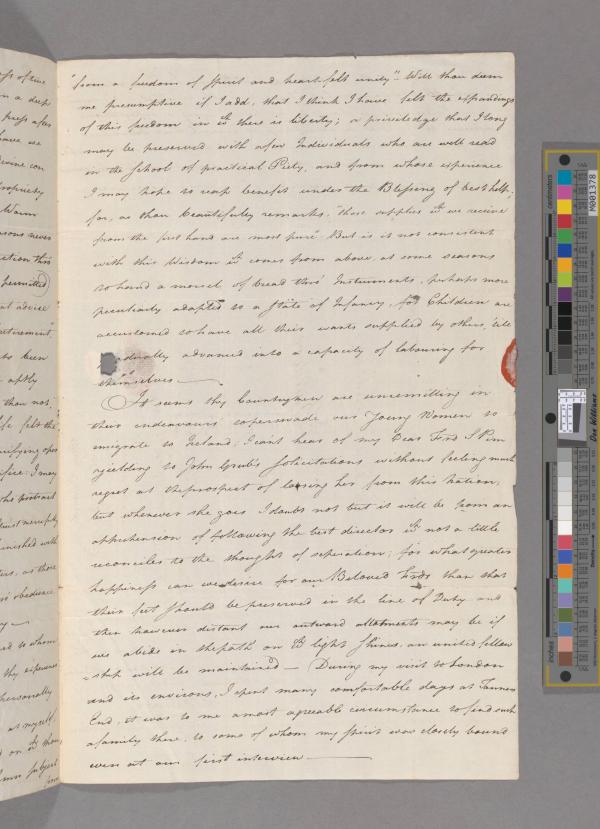 "from a freedom of Spirit and heart-felt unity". Wilt thou deem
me presumptive if I add, that I think I have felt the expandings
of this freedom in wch there is liberty; a priviledge that I long
may be preserved with a few Individuals who are well read
in the School of practical Piety, and from whose experience
I may hope to reap benefit under the Blessing of best help;
for, as thou beautifully remarks, "those supplies wch we receive
from the first hand are most pure" But is it not consistent
with this Wisdom wch comes from above, at some seasons
to hand a morsel of bread thro' Instruments, perhaps more
peculiarly adapted to a State of Infancy, for Children are
accustomed to have all their wants supplied by others, 'till
gradually advanced into a capacity of labouring for
themselves.—
It seems thy Countrymen are unremitting in
their endeavours to perswade our Young Women to
emigrate to Ireland; I can't hear of my Dear Frd S Pim
yielding to John Grubb's Solicitations without feeling much
regret at the prospect of loosing her from this Nation;
but whenever she goes I doubt not but it will be from an
apprehension of following the best director wch not a little
reconciles to the thought of seperation; for what greater
happiness can we desire for our Beloved Frds than that
their feet should be preserved in the line of Duty and
then however distant our outward allotments may be if
we abide in the path on wch light Shines, an united fellow
-ship will be maintained — During my visit to London
and its environs, I spent many comfortable days at Tanners
End, it was to me a most agreeable circumstance to find such
a family there, to some of whom my Spirit was closely bound
even at our first interview —
permitted)
advice
retirement"
been
aptly
than not,
felt the
I may
the
furnished with
as those
obedience
to whom
thy experience
personally
at myself
on wch thou
subject
centimetres
inches
M001378
Don Williams